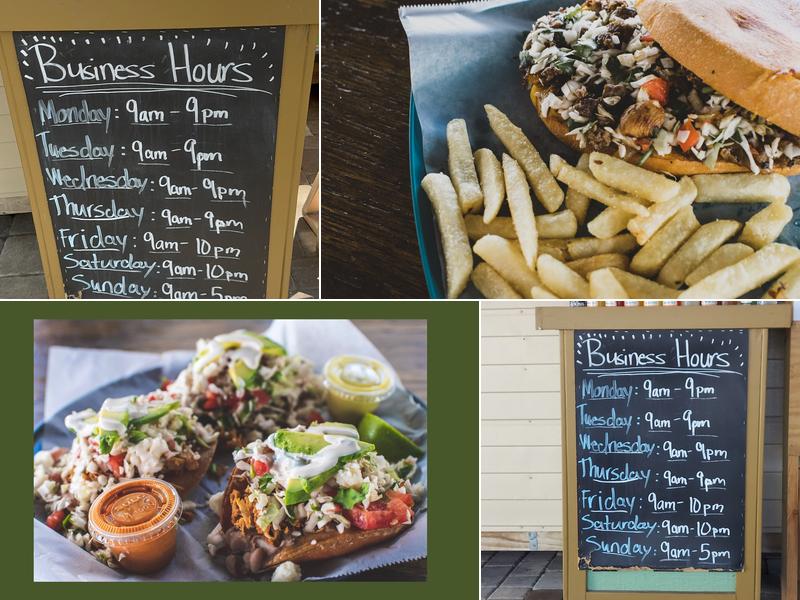 Business Hours
Monday: 9am - 9pm
Tuesday: 9am - 9pm
Wednesday: 9am - 9pm
Thursday: 9am - 9pm
Friday: 9am - 10pm
Saturday: 9am - 10pm
Sunday: 9am - 5pm
Business Hours
Monday: 9am - 9pm
Tuesday: 9am - 9pm
Wednesday: 9am - 9pm
Thursday: 9am - 9pm
Friday: 9am - 10pm
Saturday: 9am - 10pm
Sunday: 9am - 5pm